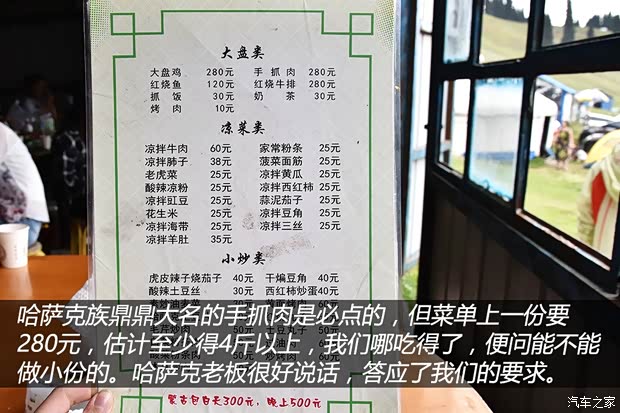 大盘类
大盘鸡 280元 手抓肉 280元
红烧鱼 120元 红烧牛排 280元
抓饭 30元 奶茶 30元
烤肉 10元
凉菜类
凉拌牛肉 60元 家常粉条 25元
凉拌肺子 38元 菠菜面筋 25元
老虎菜 25元 凉拌黄瓜 25元
酸辣凉粉 25元 凉拌西红柿 25元
凉拌豇豆 25元 蒜泥茄子 25元
花生米 25元 凉拌豆角 25元
凉拌海带 25元 凉拌三丝 25元
凉拌羊肚 35元
小炒类
虎皮辣子烧茄子 40元 干煸豆角 40元
酸辣土豆丝 30元 西红柿炒蛋 40元
哈萨克族鼎鼎大名的手抓肉是必点的，但菜单上一份要
280元，估计至少得4斤以上，我们哪吃得了，便问能不能
做小份的。哈萨克老板很好说话，答应了我们的要求。
蒙古包白天300元，晚上500元
汽车之家